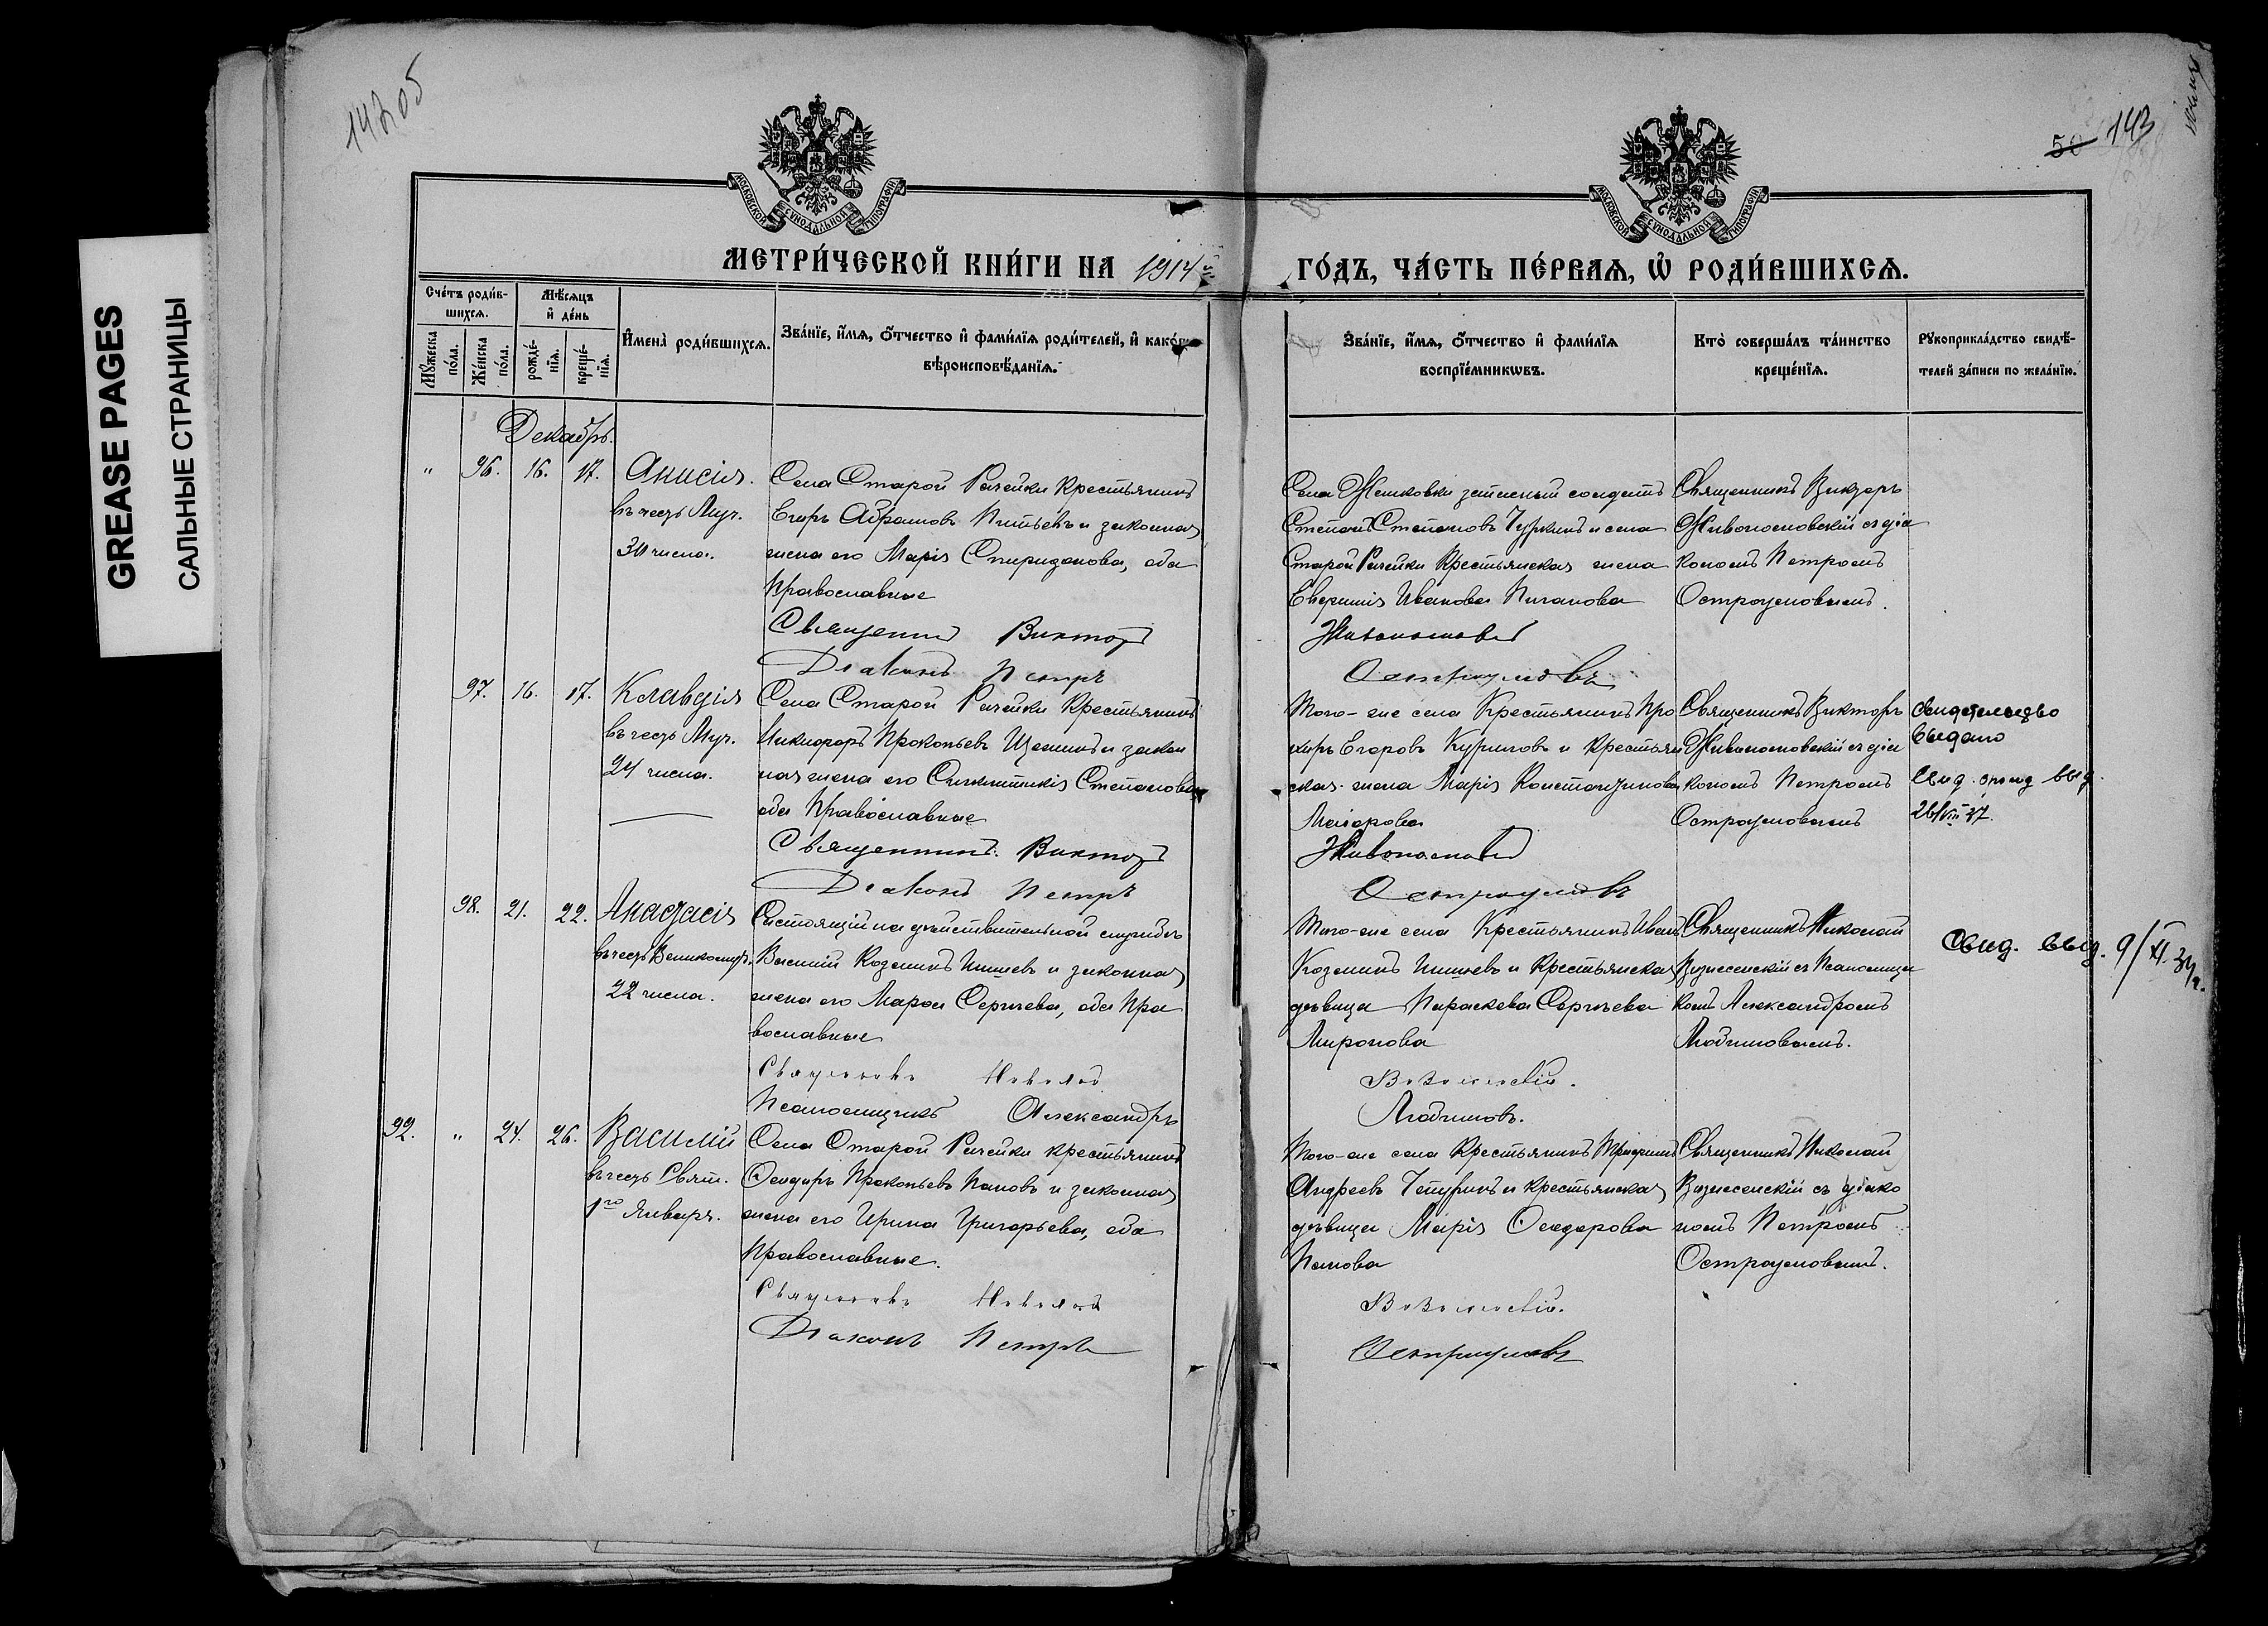 GREASE PAGES
САЛЬНЫЕ СТРАНИЦЫ
50 143
МОСКОВСКОЙ СѴНОДАЛЬНОЙ ТИПОГРАФІИ
МОСКОВСКОЙ СѴНОДАЛЬНОЙ ТИПОГРАФІИ
МЕТРИ́ЧЕСКОЙ КНИ́ГИ НА 1914 й
ГО́ДЪ, ЧА́СТЬ ПЕ́РВАѦ, Ѡ҆ РОДИ́ВШИХСѦ.
Сче́тъ роди́в-
шихсѧ.
Мꙋ́жеска по́ла.
Же́нска по́ла.
Мѣ́сѧцъ
и҆ де́нь
рожде́-
нїѧ.
креще́-
нїѧ.
И҆мена̀ роди́вшихсѧ.
Зва́нїе, и҆́мѧ, ѻ҆́тчество и҆ фами́лїѧ роди́телей, и҆ како́гѡ
вѣроисповѣ́данїѧ.
Зва́нїе, и҆́мѧ, ѻ҆́тчество и҆ фами́лїѧ
воспрїе́мникѡвъ.
Кто̀ соверша́лъ та́инство
креще́нїѧ.
Рꙋкоприкла́дство свидѣ́-
телей за́писи по жела́нїю.
Декабрь.
" 96. 16. 17. Анисія.
въ честь Муч.
30 числа.
Села Старой Рачейки крестьянинъ
Егоръ Абрамовъ и законная
жена его Марія Спиридонова, оба
Православные
Священникъ Викторъ
Діаконъ Петръ
Села запасный солдатъ
Степанъ Степановъ Чуркинъ и села
Старой Рачейки крестьянская жена
Иванова
Живоносновскій
Остроумовъ
Священникъ Викторъ
Живоносновскій съ діа
кономъ Петромъ
Остроумовымъ.
97. 16. 17. Клавдія
въ честь Муч.
24 числа.
Села Старой Рачейки крестьянинъ
Никифоръ Прокопьевъ и закон
ная жена его Синклитикія Степанова,
оба Православные
Священникъ Викторъ
Діаконъ Петръ
Того-же села Крестьянинъ Про
хоръ Егоровъ Куриловъ и крестьян
ская жена Марія Константинова
Маіорова
Живоносновскій
Остроумовъ
Священникъ Викторъ
Живоносновскій съ діа
кономъ Петромъ
Остроумовымъ
свидетельство
выдано
выд.
98. 21. 22. Анастасія
въ честь Великомуч.
22 числа.
Состоящій на дѣйствительной службѣ
Василій Козминъ и законная
жена его Марѳа Сергѣева, оба Пра
вославные
Священникъ Николай
Псаломщикъ Александръ
Того-же села Крестьянинъ Иванъ
Козминъ и крестьянская
дѣвица Параскева Сергѣева
Миронова
Вознесенскій.
Любимовъ.
Священникъ Николай
Вознесенскій съ Псаломщи
комъ Александромъ
Любимовымъ.
Свид. выд. 9/XI 34 г.
92. " 24. 26. Василій
въ честь Свят.
1го Января.
Села Старой Рачейки крестьянинъ
Ѳеодоръ Прокопьевъ Поповъ и законная
жена его Ирина Григорьева, оба
Православные.
Священникъ Николай
Діаконъ Петръ
Того-же села Крестьянинъ
Андреевъ и крестьянская
дѣвица Марія Ѳеодорова
Попова
Вознесенскій.
Остроумовъ
Священникъ Николай
Вознесенскій съ діако
номъ Петромъ
Остроумовымъ.